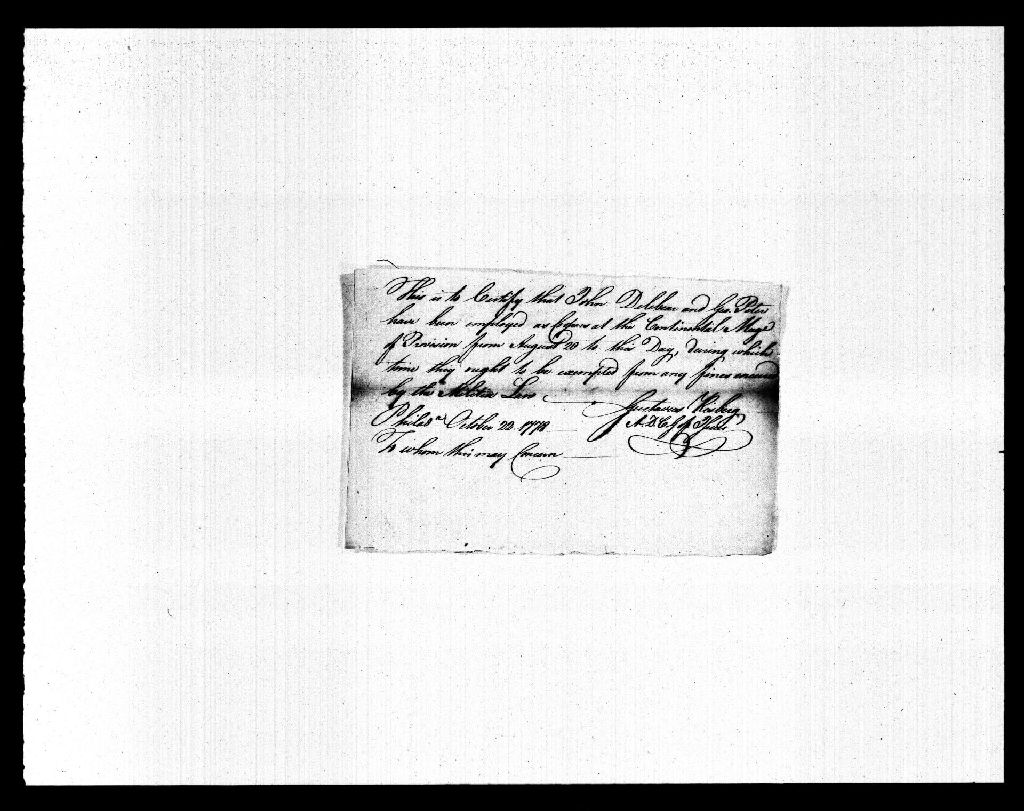 This is to Certify that John Delbear and Geo. Peter
have been employed as Coopers at the Continental Magz
of Provision from August 28 to this Day, During which
time they ought to be exempted from any fines
by the Militia Law
Gustavus Risberg
Philada October 22 1778 A.D.C.G of
To whom this may Concern